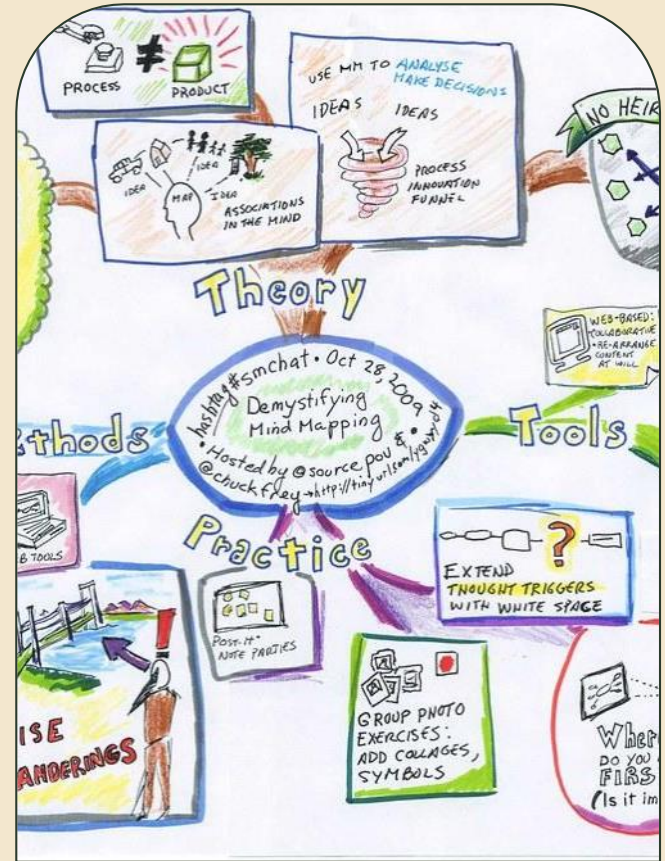 PROCESS ≠ PRODUCT
USE MM TO ANALYSE
MAKE DECISIONS
IDEAS IDEAS
PROCESS
INNOVATION
FUNNEL
NO HEIR
IDEA
IDEA
MAP
IDEA
ASSOCIATIONS
IN THE MIND
Theory
WEB-BASED:
COLLABORATIVE
• RE-ARRANGE
CONTENT
AT WILL
hashtag #smchat • Oct 28, 2009
Demystifying
Mind Mapping
• Hosted by @sourcepov &
@chuckfrey → http://tinyurl.com/
thods
Tools
B TOOLS
Practice
POST-IT
NOTE PARTIES
?
EXTEND
THOUGHT TRIGGERS
WITH WHITE SPACE
!
ISE
ANDERINGS
GROUP PHOTO
EXERCISES:
ADD COLLAGES,
SYMBOLS
Wher
DO YOU
FIRS
(Is it im